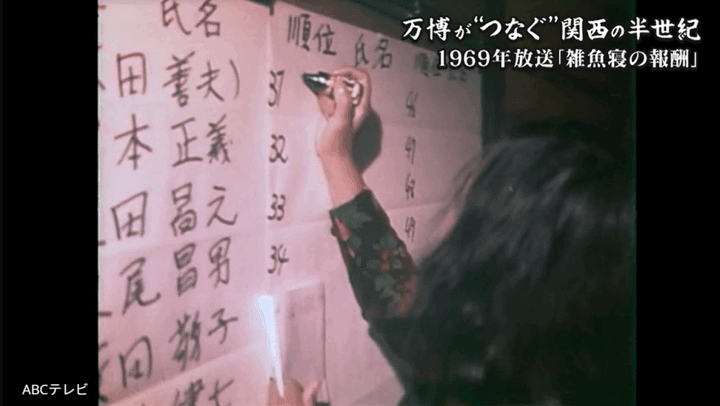 万博が“つなぐ”関西の半世紀
1969年放送「雑魚寝の報酬」
氏名
順位 氏名
田 善夫)
本 正義
田 昌元
尾 昌男
田 敬子
37
32
33
34
46
47
48
49
ABCテレビ